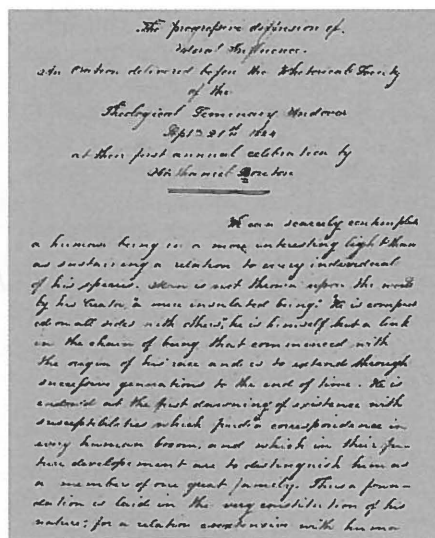 The progressive diffusion of
Moral Influence.
An Oration delivered before the Rhetorical Society
of the
Theological Seminary Andover
Sept. 21st 1824
at their first annual celebration by
Nathaniel Bouton
We can scarcely contemplate
a human being in a more interesting light than
as sustaining a relation to every individual
of his species. Man is not thrown upon the world
by his Creator, a mere insulated being: He is compass
ed on all sides with others; he is himself but a link
in the chain of being that commenced with
the origin of his race and is to extend through
successive generations to the end of time. He is
endow'd at the first dawning of existence with
susceptibilities which find a correspondence in
every human bosom, and which in their fu-
ture developement are to distinguish him as
a member of one great family. Thus a foun-
dation is laid in the very constitution of his
nature; for a relation coextensive with human